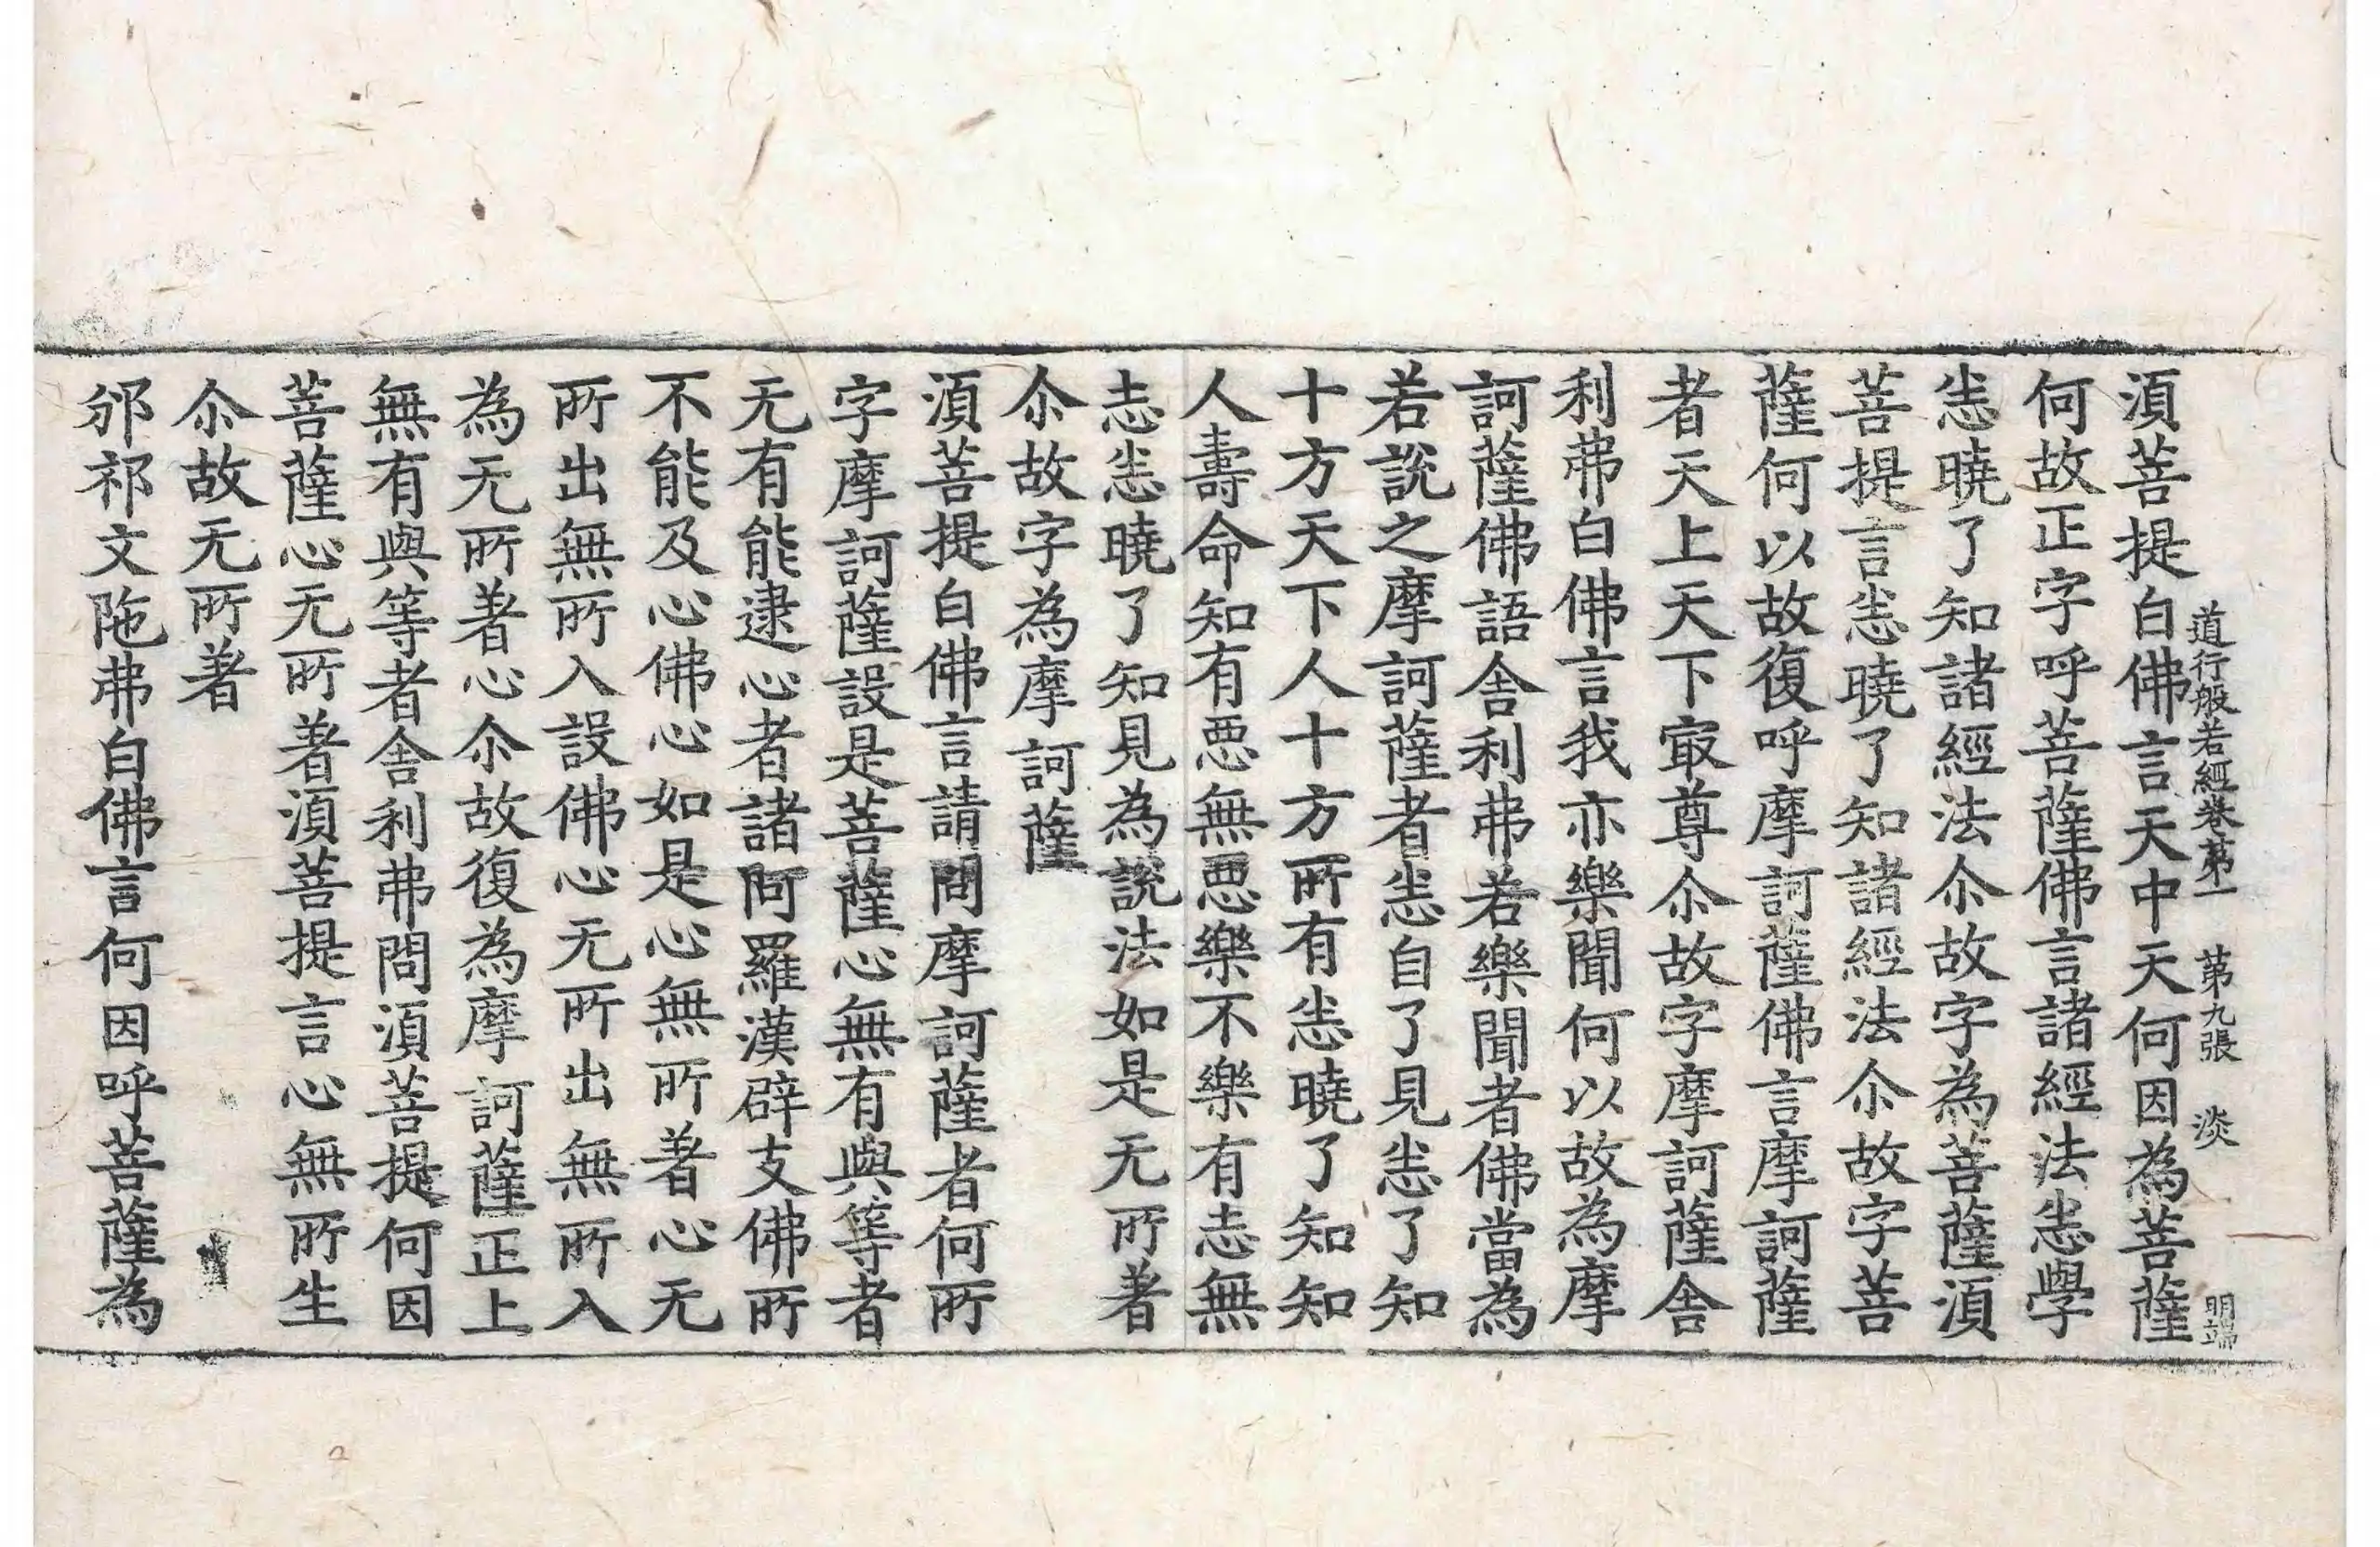 道行般若經卷第一 第九張 淡 明端
湏菩提白佛言天中天何因為菩薩
何故正字呼菩薩佛言諸經法㤙學
㤙曉了知諸經法尒故字為菩薩湏
菩提言㤙曉了知諸經法尒故字菩
薩何以故復呼摩訶薩佛言摩訶薩
者天上天下㝡尊尒故字摩訶薩舎
利弗白佛言我亦樂聞何以故為摩
訶薩佛語舎利弗若樂聞者佛當為
若說之摩訶薩者㤙自了見㤙了知
十方天下人十方所有㤙曉了知知
人壽命知有惡無惡樂不樂有志無
志㤙曉了知見為說法如是无所著
尒故字為摩訶薩
湏菩提白佛言請問摩訶薩者何所
字摩訶薩設是菩薩心無有與等者
无有能逮心者諸阿羅漢辟支佛所
不能及心佛心如是心無所著心无
所出無所入設佛心无所出無所入
為无所著心尒故復為摩訶薩正上
無有與等者舎利弗問湏菩提何因
菩薩心无所著湏菩提言心無所生
尒故无所著
邠祁文陁弗白佛言何因呼菩薩為